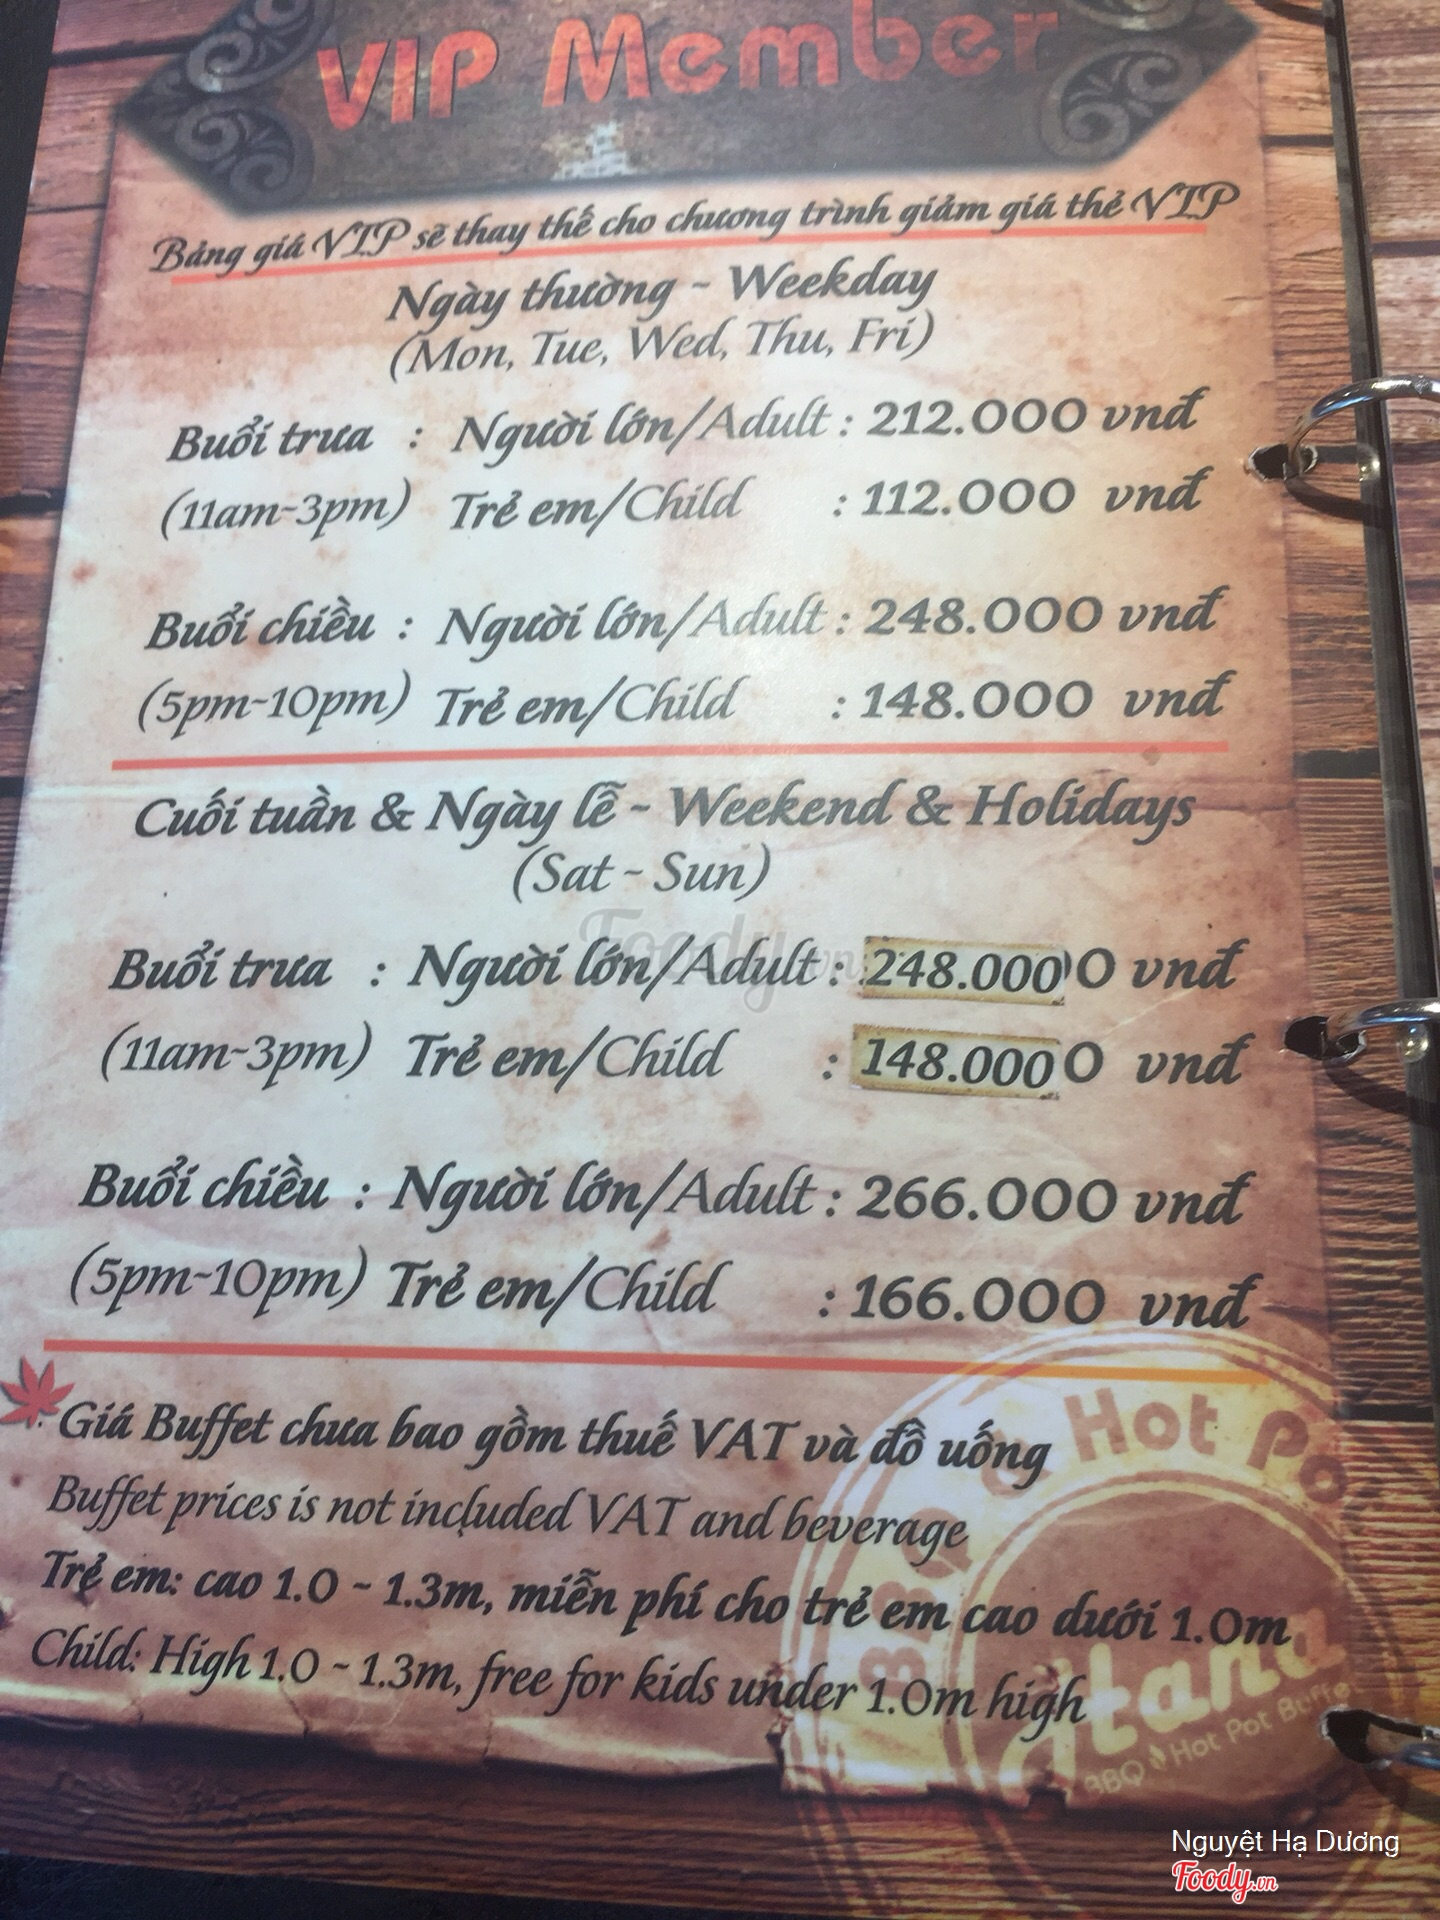 VIP Member
Bảng giá VIP sẽ thay thế cho chương trình giảm giá thẻ VIP
Ngày thường ~ Weekday
(Mon, Tue, Wed, Thu, Fri)
Buổi trưa : Người lớn/Adult : 212.000 vnđ
(11am~3pm) Trẻ em/Child : 112.000 vnđ
Buổi chiều : Người lớn/Adult : 248.000 vnđ
(5pm~10pm) Trẻ em/Child : 148.000 vnđ
Cuối tuần & Ngày lễ ~ Weekend & Holidays
(Sat ~ Sun)
Buổi trưa : Người lớn/Adult : 248.0000 vnđ
(11am~3pm) Trẻ em/Child : 148.0000 vnđ
Buổi chiều : Người lớn/Adult : 266.000 vnđ
(5pm~10pm) Trẻ em/Child : 166.000 vnđ
Giá Buffet chưa bao gồm thuế VAT và đồ uống
Buffet prices is not included VAT and beverage
Trẻ em: cao 1.0 ~ 1.3m, miễn phí cho trẻ em cao dưới 1.0m
Child: High 1.0 ~ 1.3m, free for kids under 1.0m high
Hot Po
Hana
BBQ Hot Pot Buffe
Foody.vn
Nguyệt Hạ Dương
Foody.vn